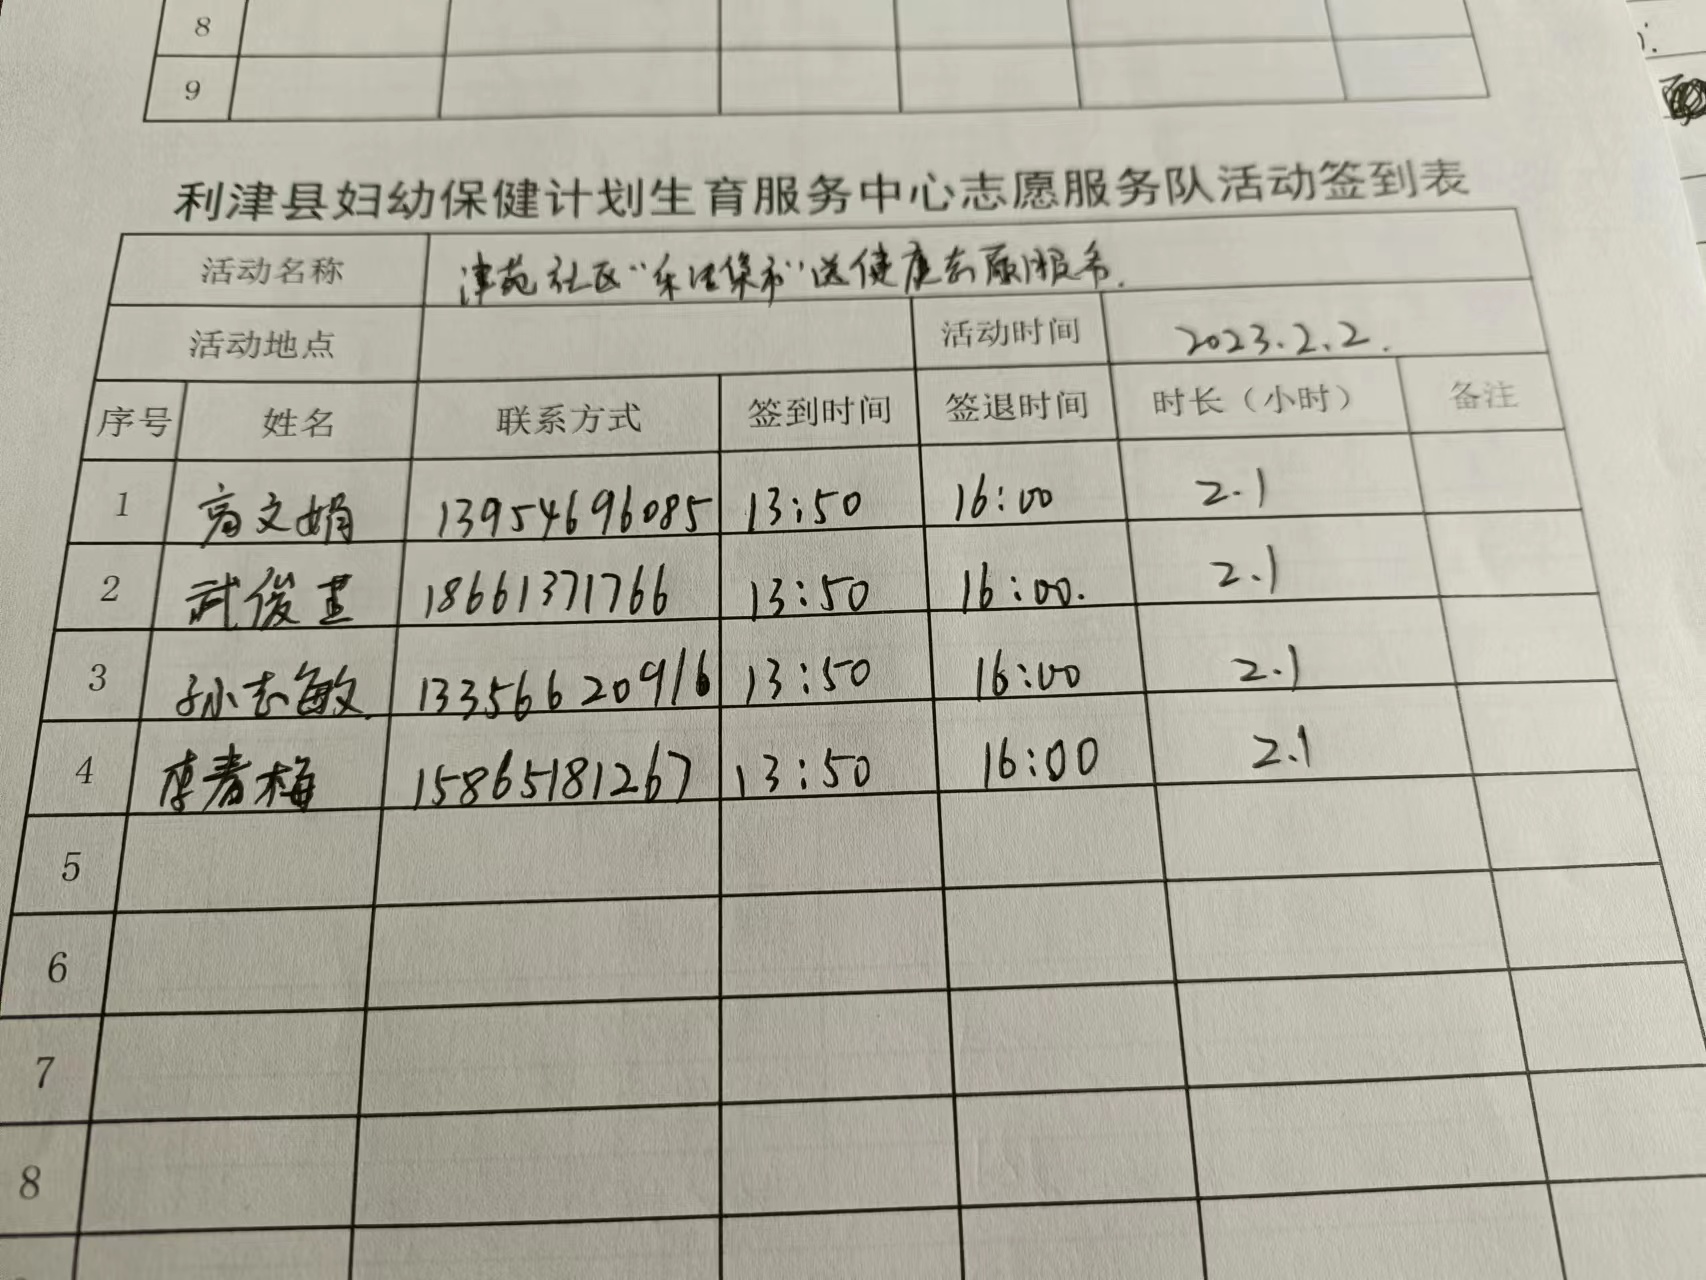 8
9
利津县妇幼保健计划生育服务中心志愿服务队活动签到表
活动名称 津苑社区“乐活集市”送健康志愿服务.
活动地点 活动时间 2023.2.2.
序号 姓名 联系方式 签到时间 签退时间 时长（小时） 备注
1 高文娟 13954696085 13:50 16:00 2.1
2 武俊 18661371766 13:50 16:00. 2.1
3 孙志敏 13356620916 13:50 16:00 2.1
4 李春梅 15865181267 13:50 16:00 2.1
5
6
7
8